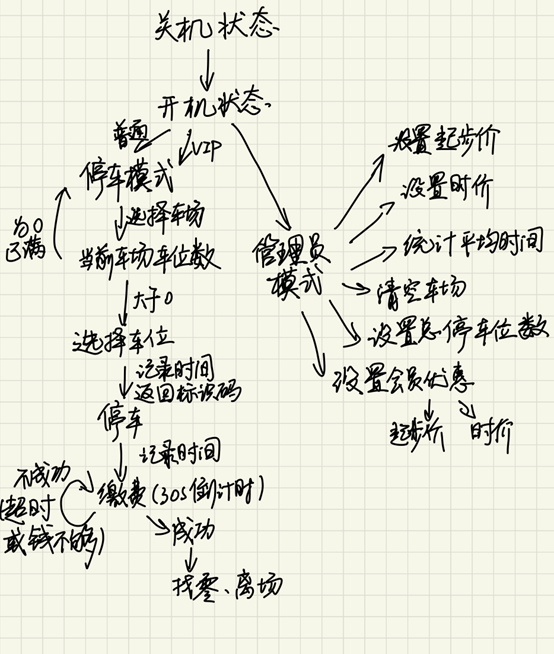 关机状态
开机状态
普通
VIP
停车模式
选择车场
为0
已满
当前车场车位数
大于0
选择车位
记录时间
返回标识码
停车
记录时间
不成功
(超时
或钱不够)
缴费(30S倒计时)
成功
找零、离场
管理员
模式
设置起步价
设置时价
统计平均时间
清空车场
设置总停车位数
设置会员优惠
起步价
时价